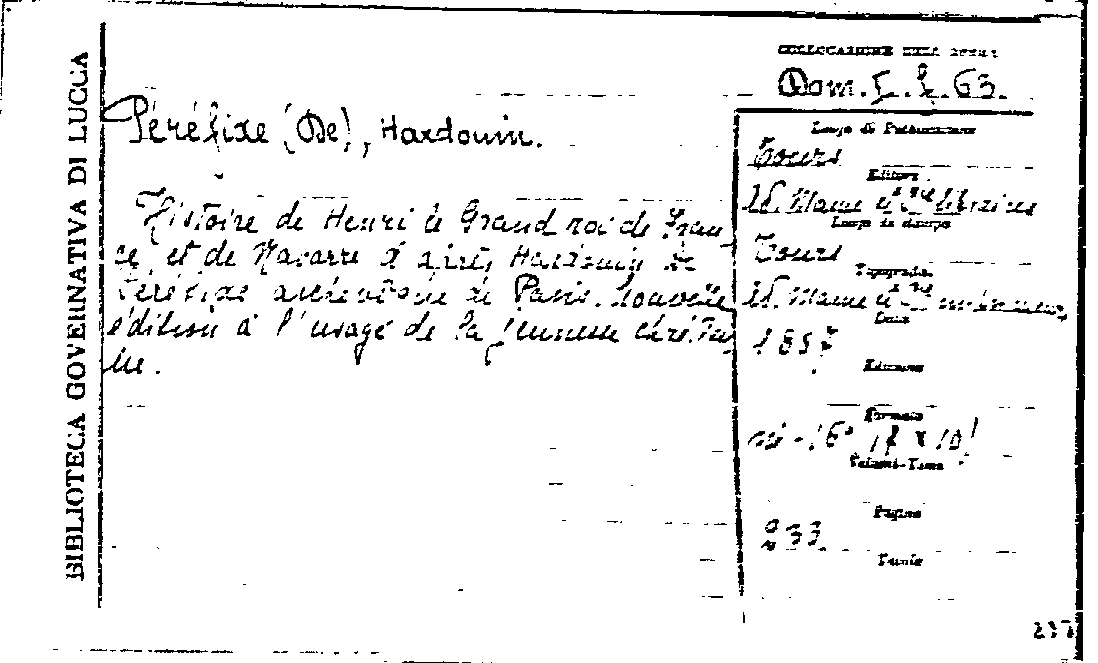 BIBLIOTECA GOVERNATIVA DI LUCCA
COLLOCAZIONE DELL'OPERA
Dom. 63.
Péréfixe (De), Hardouin.
Histoire de Henri le Grand roi de Fran-
ce et de Navarre d'après Hardouin de
Péréfixe archevêque de Paris. Nouvelle
édition à l'usage de la jeunesse chrétien
ne.
Luogo di Pubblicazione
Tours
Editore
Mame et libraires
Luogo di stampa
Tours
Tipografia
Mame et
Data
1857
Edizione
Formato
in-16°
Volumi-Tomo
Pagine
233
Tavole
237